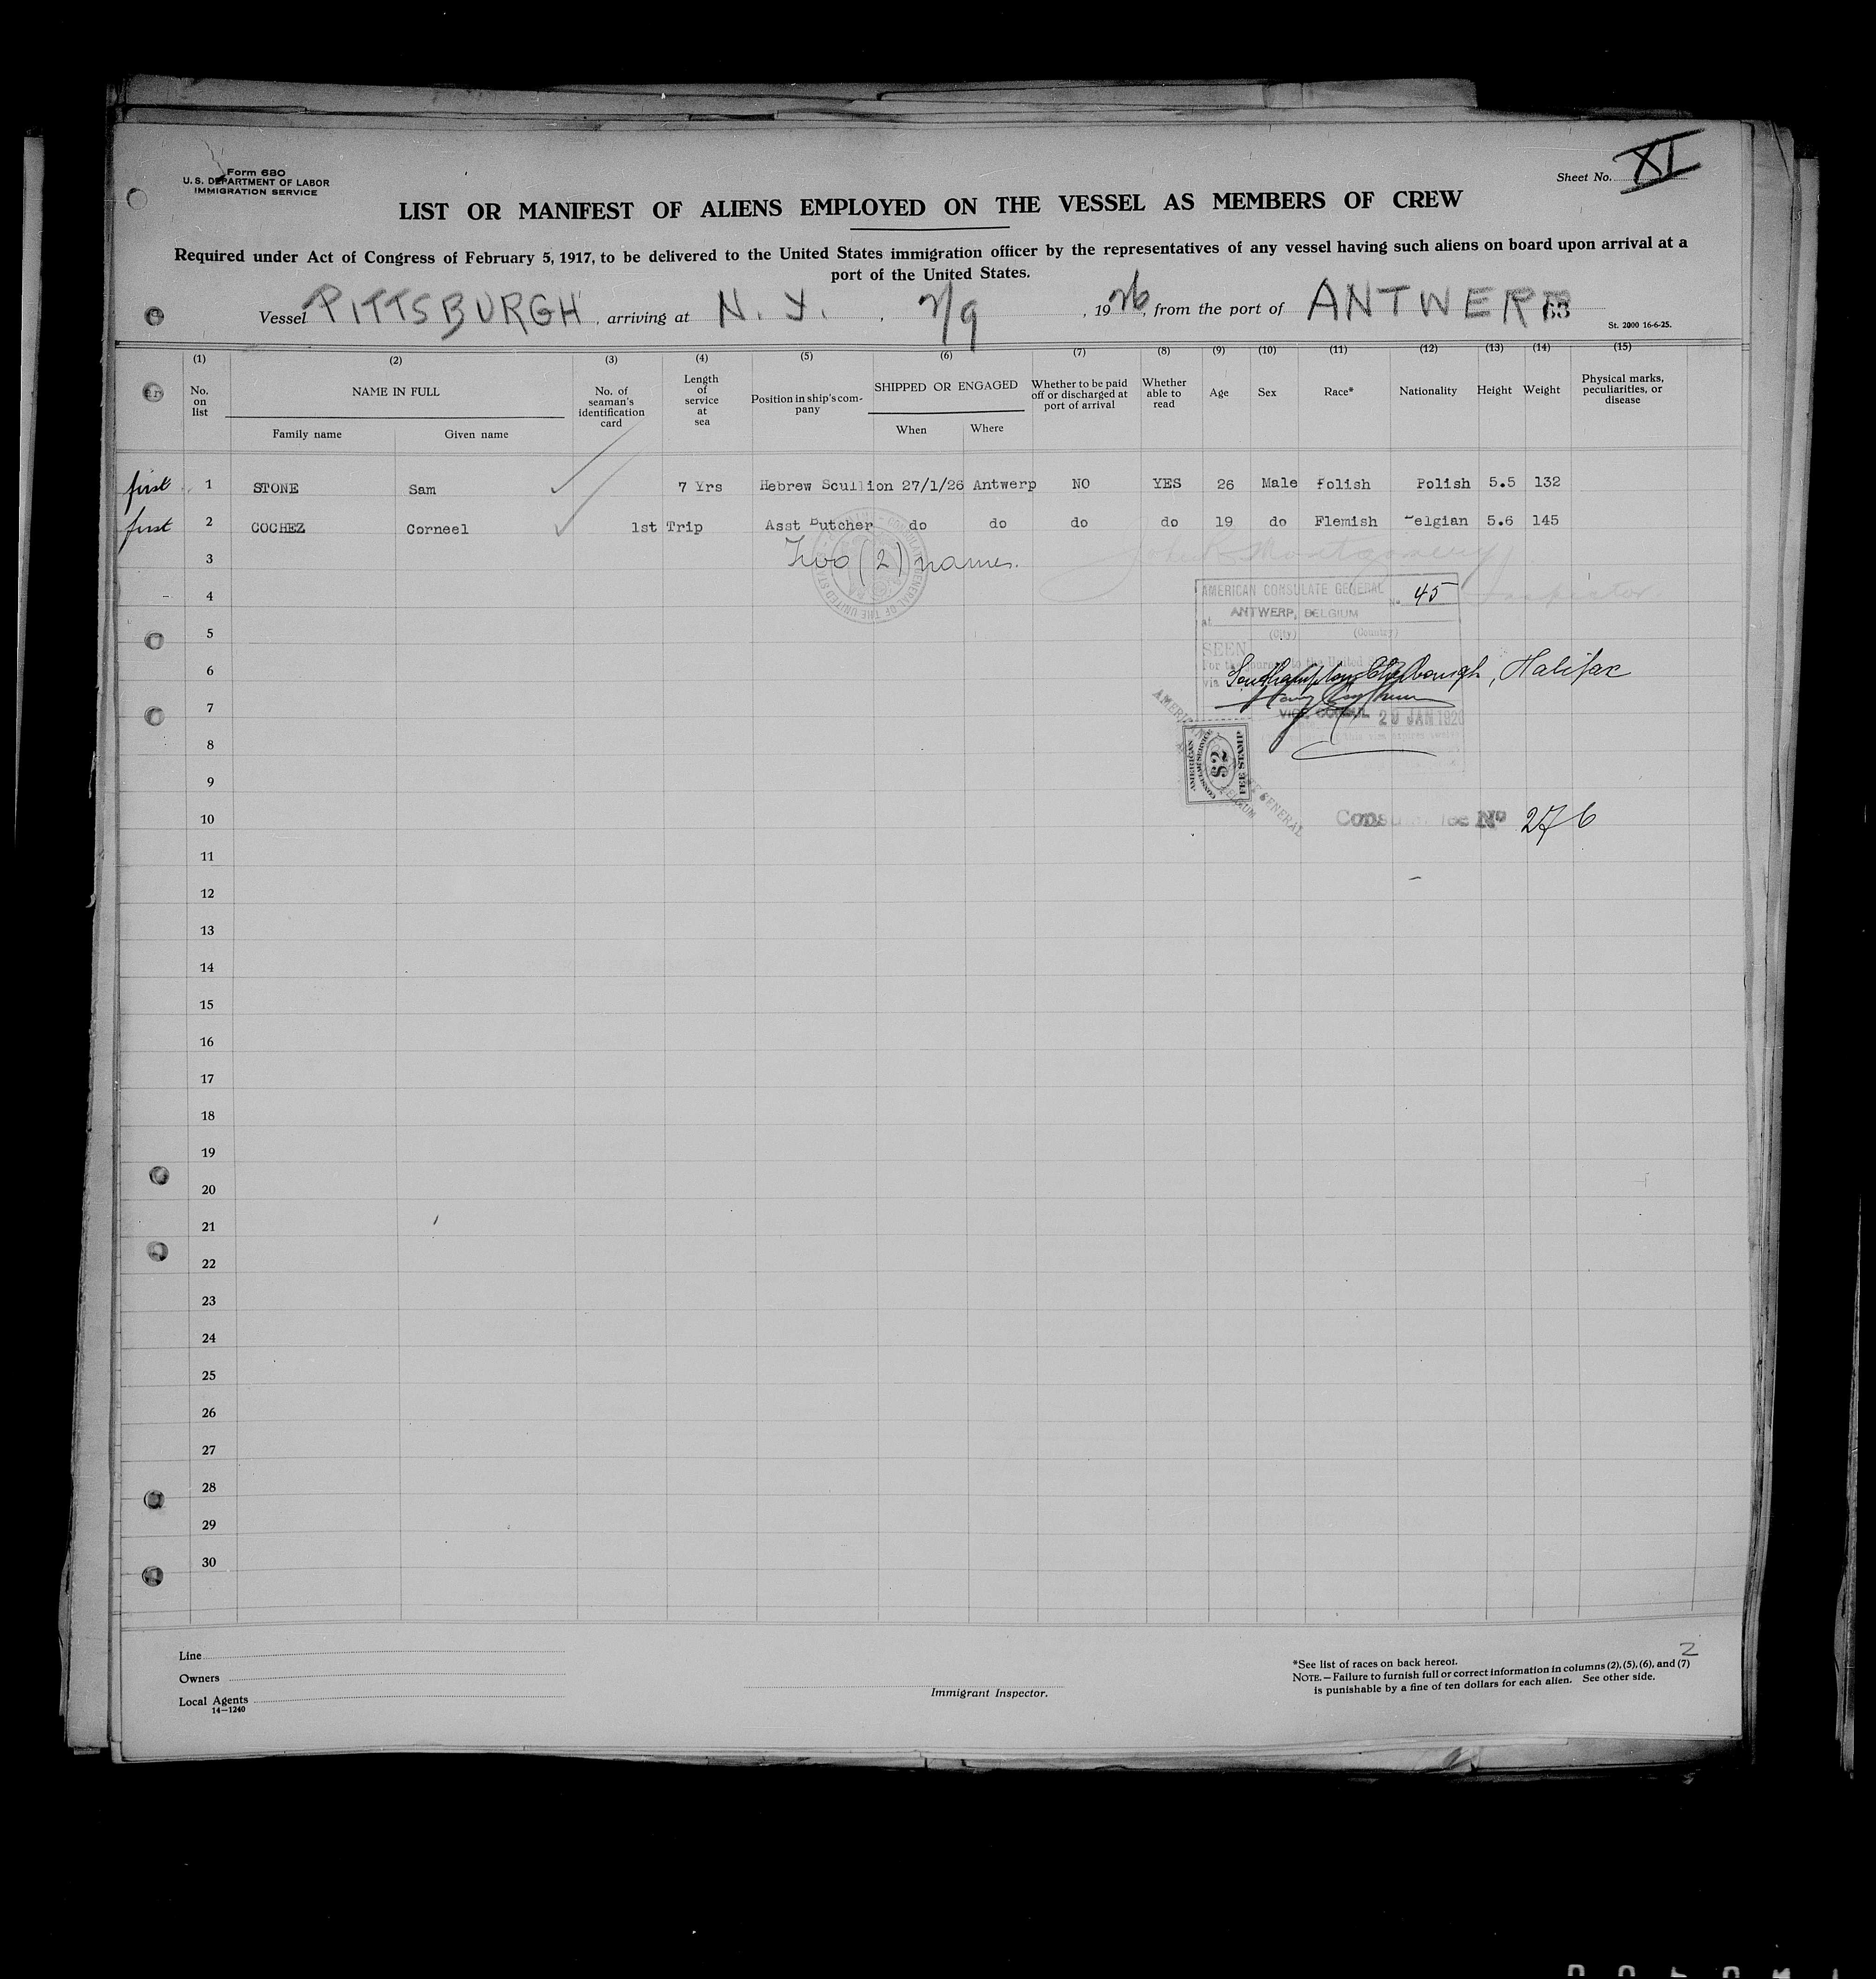 Form 680
U. S. DEPARTMENT OF LABOR
IMMIGRATION SERVICE
Sheet No. XI
LIST OR MANIFEST OF ALIENS EMPLOYED ON THE VESSEL AS MEMBERS OF CREW
Required under Act of Congress of February 5, 1917, to be delivered to the United States immigration officer by the representatives of any vessel having such aliens on board upon arrival at a
port of the United States.
Vessel PITTSBURGH, arriving at N. Y., 2/9, 1926, from the port of ANTWERP 63
St. 2000 16-6-25.
(1) (2) (3) (4) (5) (6) (7) (8) (9) (10) (11) (12) (13) (14) (15)
No. on list
NAME IN FULL
Family name Given name
No. of seaman's identification card
Length of service at sea
Position in ship's company
SHIPPED OR ENGAGED
When Where
Whether to be paid off or discharged at port of arrival
Whether able to read
Age Sex Race* Nationality Height Weight
Physical marks, peculiarities, or disease
first 1 STONE Sam 7 Yrs Hebrew Scullion 27/1/26 Antwerp NO YES 26 Male Polish Polish 5.5 132
first 2 COCHEZ Corneel 1st Trip Asst Butcher do do do do 19 do Flemish Belgian 5.6 145
3 Two (2) names. John R Montgomery
4 Inspector.
AMERICAN CONSULATE GENERAL No 45
at ANTWERP, BELGIUM
(City) (Country)
5
SEEN
For the journey to the United States
6 via Southampton, Cherbourgh, Halifax
7 VICE CONSUL 29 JAN 1926
8
AMERICAN CONSULAR SERVICE $2 FEE STAMP
AMERICAN CONSULATE GENERAL
BELGIUM
9
10 Consular Fee No 276
11
12
13
14
15
16
17
18
19
20
21
22
23
24
25
26
27
28
29
30
2
Line
Owners
Local Agents
14—1240
Immigrant Inspector.
*See list of races on back hereof.
NOTE.—Failure to furnish full or correct information in columns (2), (5), (6), and (7)
is punishable by a fine of ten dollars for each alien. See other side.